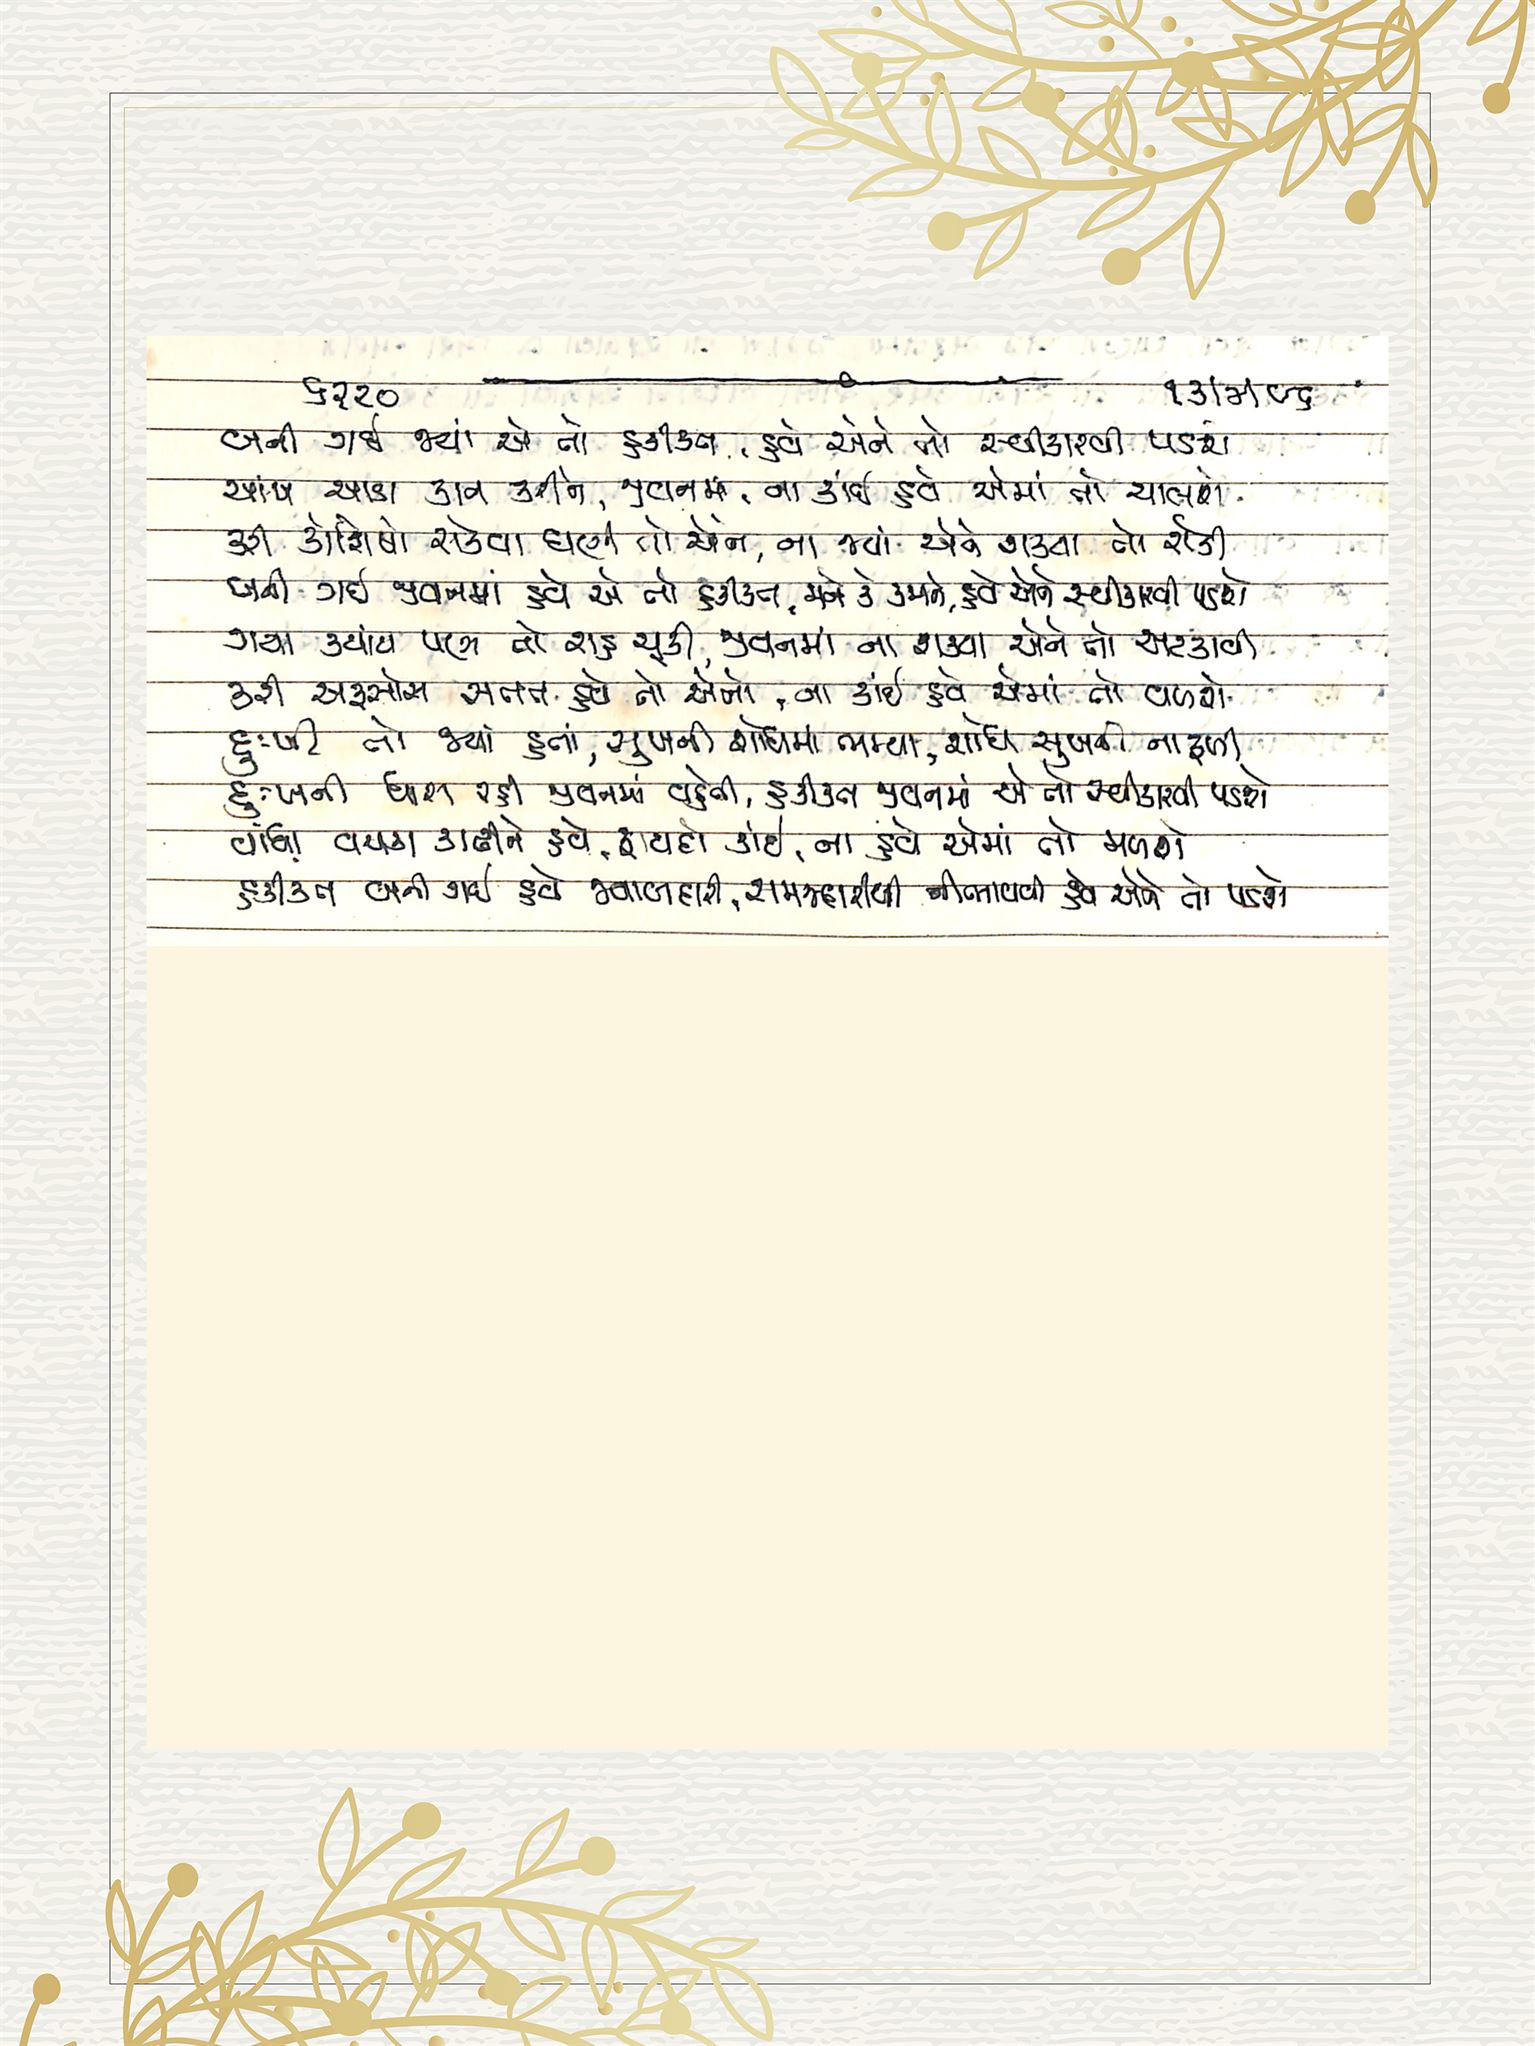 ૬૨૨૦ ૧૩/મે/૯૬
બની ગઈ જ્યાં એ તો હકીકત, હવે એને તો સ્વીકારવી પડશે
આંખ આડા કાન કરીને, જીવનમાં, ના કાંઈ હવે એમાં તો ચાલશે
કરી કોશિષો રોકવા ઘણી તો એને, ના જ્યાં એને શક્યા તો રોકી
બની ગઈ જીવનમાં હવે એ તો હકીકત, મને કે કમને, હવે એને સ્વીકારવી પડશે
ગયા ક્યાંય પણ તો રાહ ચૂકી, જીવનમાં ના શક્યા એને તો અટકાવી
કરી અફસોસ સતત હવે તો એનો, ના કાંઈ હવે એમાં તો વળશે
દુઃખી તો જ્યાં હતાં, સુખની શોધમાં ભમ્યા, શોધ સુખની ના ફળી
દુઃખની ધારા રહી જીવનમાં વહેતી, હકીકત જીવનમાં એ તો સ્વીકારવી પડશે
વાંધા વચકા કાઢીને હવે, ફાયદો કાંઈ, ના હવે એમાં તો મળશે
હકીકત બની ગઈ હવે જવાબદારી, સમજદારીથી નીભાવવી હવે એને તો પડશે